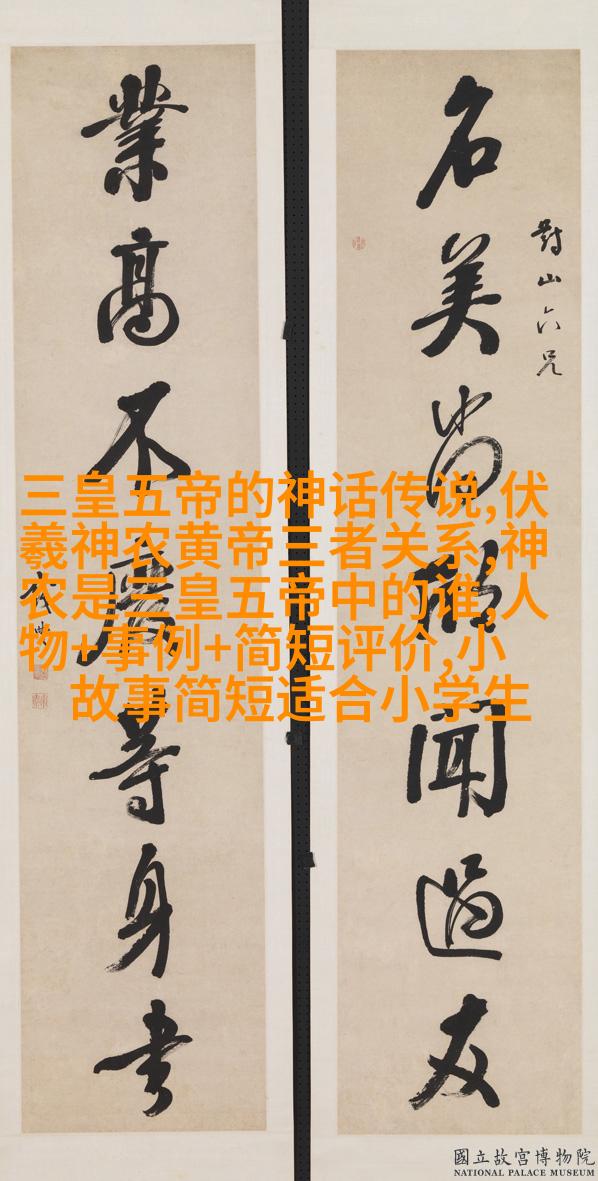 三皇五帝的神话传说,伏
羲神农黄帝三者关系,神
农是三皇五帝中的谁,人
物+事例+简短评价,小
故事简短适合小学生
對山六兄
名美尚聞過友
業高不等身書
國立故宮博物院
NATIONAL PALACE MUSEUM